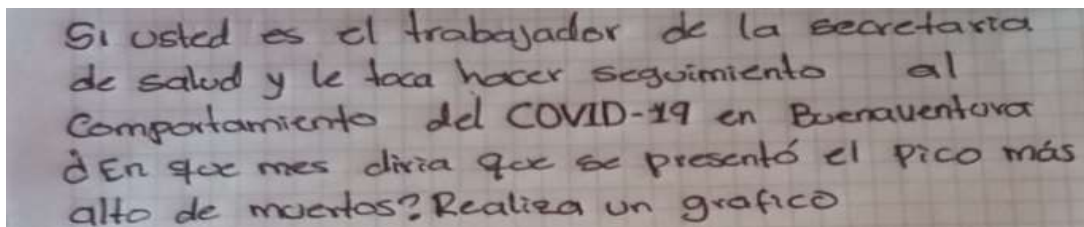 Si usted es el trabajador de la secretaria
de salud y le toca hacer seguimiento al
comportamiento del COVID-19 en Buenaventura
¿En que mes diria que se presentó el pico más
alto de muertos? Realiza un grafico